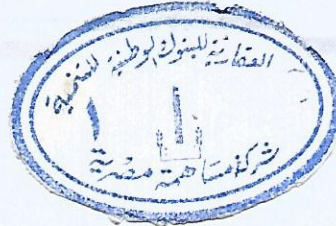 العقارية للبنوك الوطنية للتنمية
١
شركة مساهمة مصرية